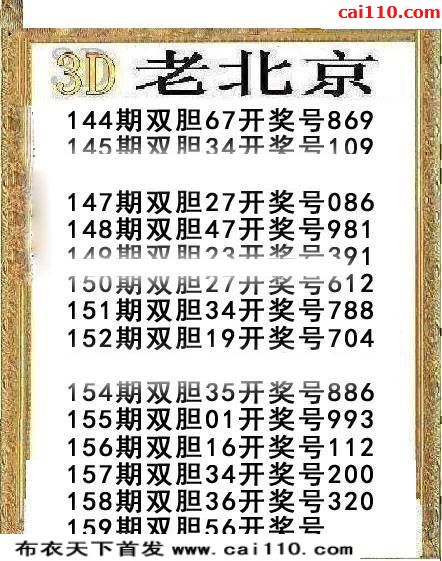 cai110.com
3D 老北京
144期双胆67开奖号869
145期双胆34开奖号109
147期双胆27开奖号086
148期双胆47开奖号981
149期双胆23开奖号391
150期双胆27开奖号612
151期双胆34开奖号788
152期双胆19开奖号704
154期双胆35开奖号886
155期双胆01开奖号993
156期双胆16开奖号112
157期双胆34开奖号200
158期双胆36开奖号320
159期双胆56开奖号
布衣天下首发 www.cai110.com